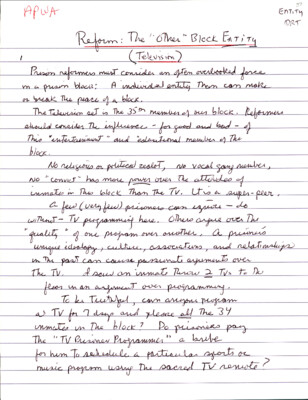 APWA
ENTITY
DRT
Reform: The "Other" Block Entity
(Television)
Prison reformers must consider an often overlooked force
in a prison block: A individual entity that can make
or break the peace of a block.
The television set is the 35th member of our block. Reformers
should consider the influence - for good and bad - of
this "entertainment" and educational member of the
block.
No religious or political zealot, no vocal gang member,
no "convict" has more power over the attitudes of
inmates in this block than the TV. It is a super-peer.
A few (very few) prisoners can ignore - do
without - TV programming here. Others argue over the
"quality" of one program over another. A prisoner's
unique ideology, culture, associations, and relationships
in the past can cause passionate arguments over
the TV. I saw an inmate throw 2 TVs to the
floor in an argument over programming.
To be truthful, can anyone program
a TV for 7 days and please all the 34
inmates in the block? Do prisoners pay
the "TV Prisoner Programmer" a bribe
for him to schedule a particular sports or
music program using the sacred TV remote?